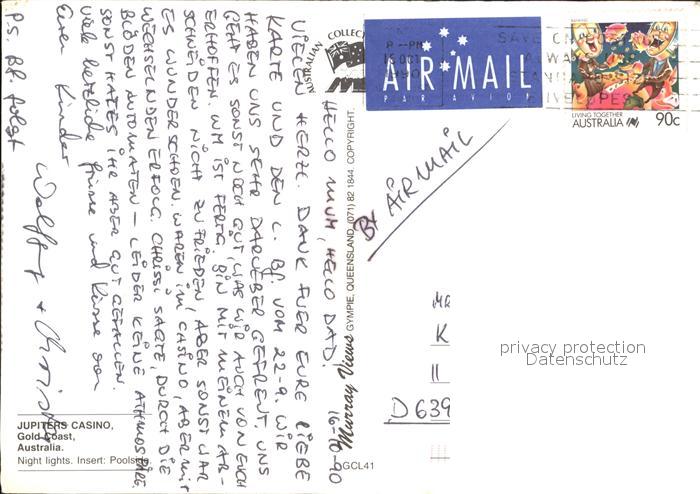 HELLO MUM, HELLO DAD! 16-10-90
VIELEN HERZL. DANK FUER EURE LIEBE
KARTE UND DEN L. BF. VOM 22-9. WIR
HABEN UNS SEHR DARUEBER GEFREUT. UNS
GEHT ES SONST NOCH GUT, WAS WIR AUCH VON EUCH
ERHOFFEN. WM IST FERTIG. BIN MIT MEINEM AB-
SCHNEIDEN NICHT ZUFRIEDEN, ABER SONST WAR
ES WUNDERSCHOEN. WAREN IM CASINO, ABER MIT
WECHSELNDEN ERFOLG. CHRISSI SAGTE, DURCH DIE
BLÖDEN AUTOMATEN - LEIDER KEINE ATHMOSPÄRE.
SONST HAT ES IHR ABER GUT GEFALLEN.
Viele herzliche Grüsse und Küsse von
Euren Kindern
P.S. BF. folgt
JUPITERS CASINO,
Gold Coast,
Australia.
Night lights. Insert: Poolside.
AUSTRALIAN COLLECT
Murray Views GYMPIE, QUEENSLAND. (071) 82 1844. COPYRIGHT.
GCL41
AIR MAIL
PAR AVION
P --PM
16 OCT
1990
LIVING TOGETHER
AUSTRALIA 90c
By AIR MAIL
K
D 639
privacy protection
Datenschutz